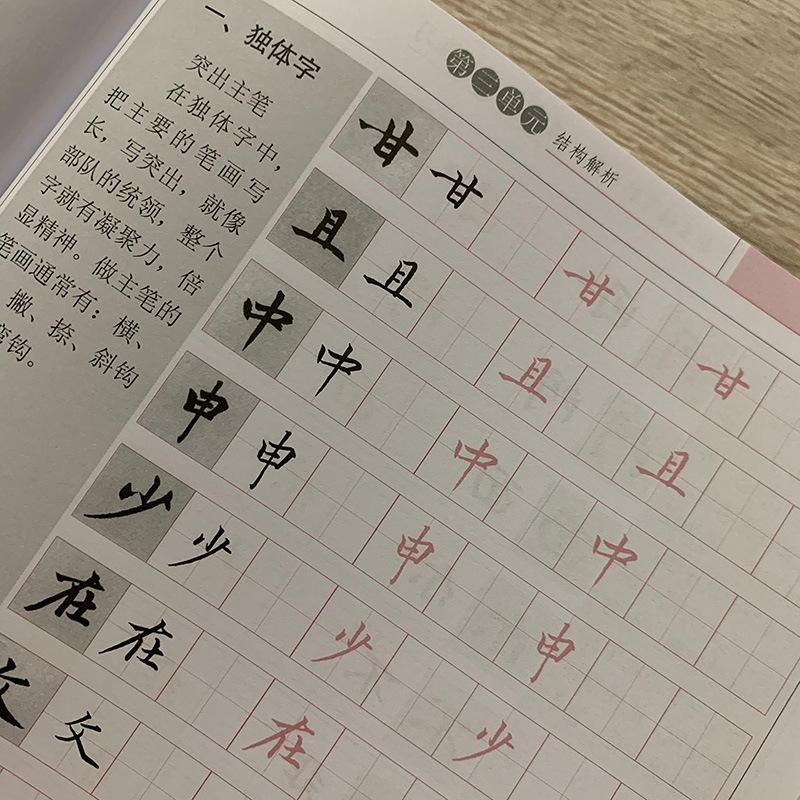 第三单元 结构解析
一、独体字
突出主笔
在独体字中，
把主要的笔画写
长，写突出，就像
部队的统领，整个
字就有凝聚力，倍
显精神。做主笔的
笔画通常有：横、
撇、捺、斜钩
弯钩。
甘 甘 甘 甘
且 且 且 且
中 中 中 中
申 申 申 申
少 少 少 少
在 在 在
文 文